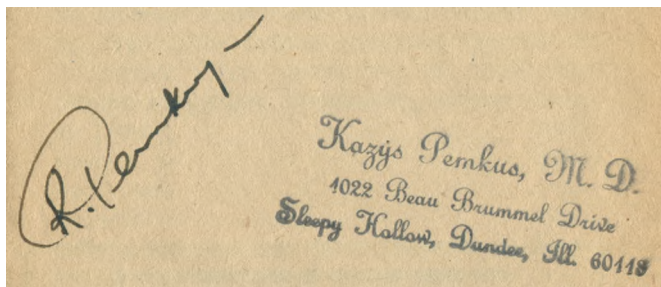 R. Pemkus
Kazys Pemkus, M. D.
1022 Beau Brummel Drive
Sleepy Hollow, Dundee, Ill. 60118